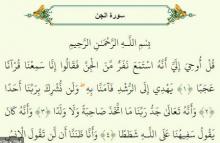 سورة الجن
بِسْمِ اللَّهِ الرَّحْمَٰنِ الرَّحِيمِ
قُلْ أُوحِيَ إِلَيَّ أَنَّهُ اسْتَمَعَ نَفَرٌ مِّنَ الْجِنِّ فَقَالُوا إِنَّا سَمِعْنَا قُرْآنًا
عَجَبًا ﴿١﴾ يَهْدِي إِلَى الرُّشْدِ فَآمَنَّا بِهِ ۖ وَلَن نُّشْرِكَ بِرَبِّنَا أَحَدًا
﴿٢﴾ وَأَنَّهُ تَعَالَىٰ جَدُّ رَبِّنَا مَا اتَّخَذَ صَاحِبَةً وَلَا وَلَدًا ﴿٣﴾ وَأَنَّهُ كَانَ
يَقُولُ سَفِيهُنَا عَلَى اللَّهِ شَطَطًا ﴿٤﴾ وَأَنَّا ظَنَنَّا أَن لَّن تَقُولَ الْإِنسُ